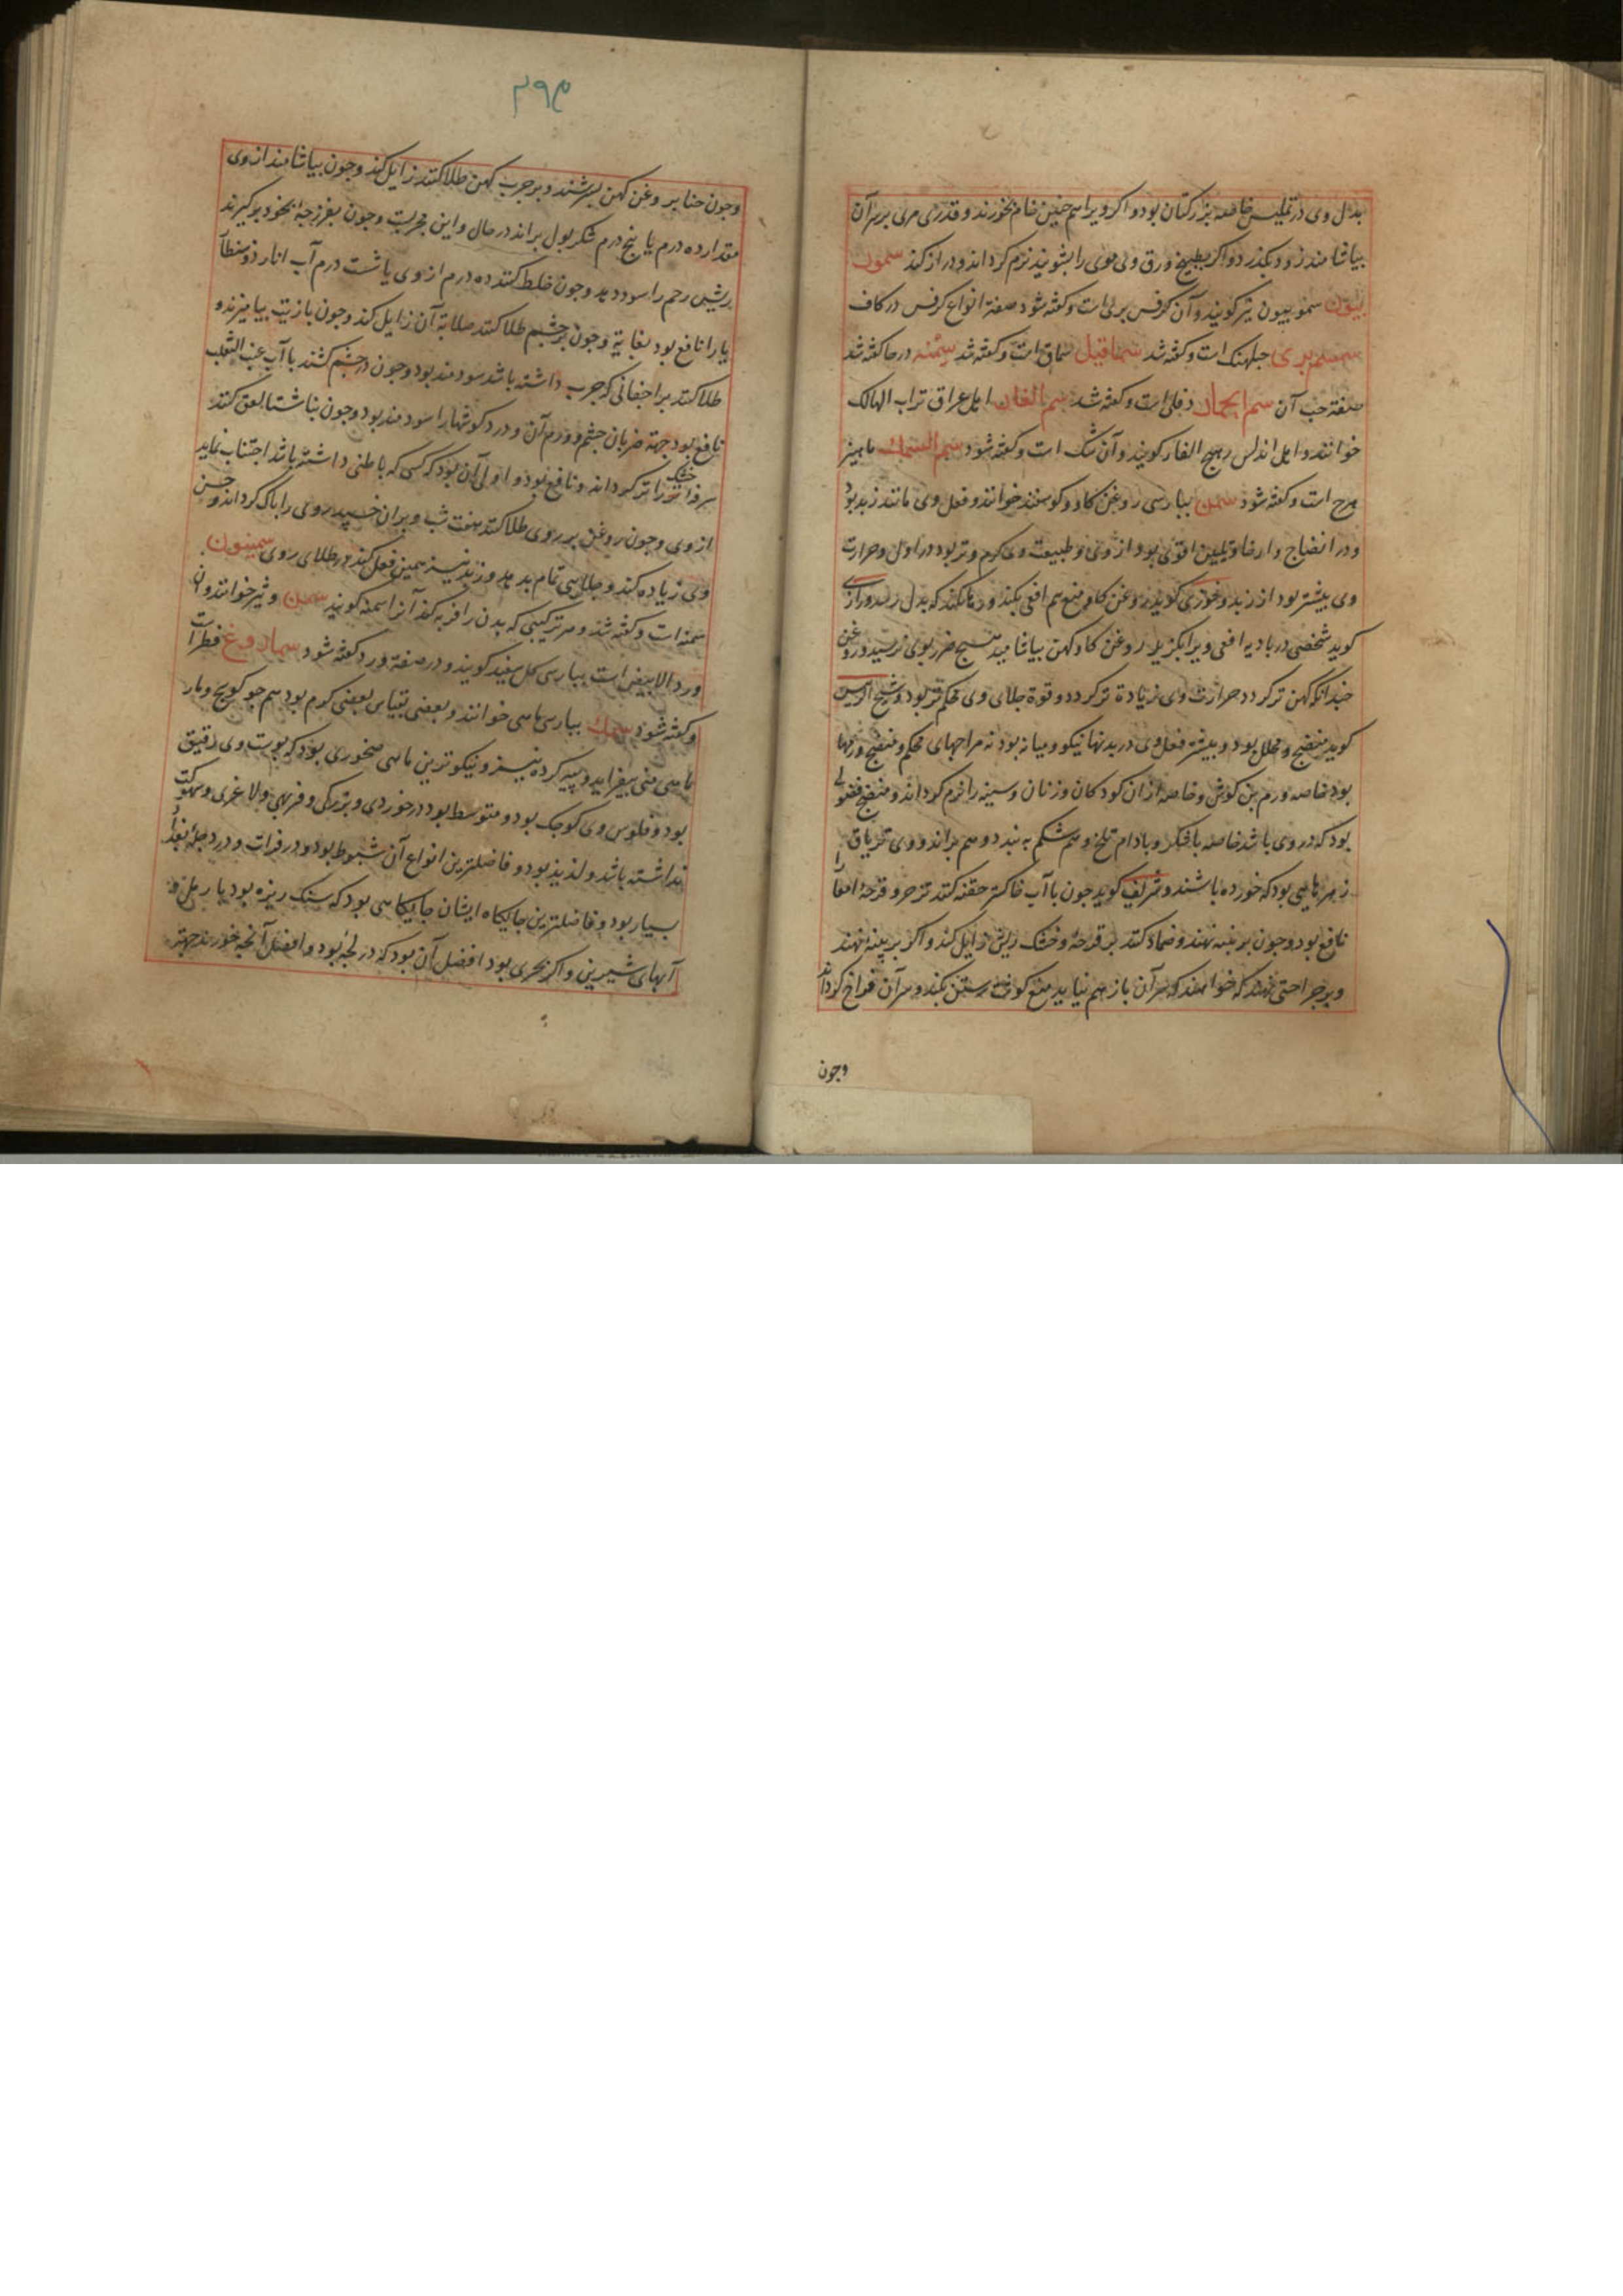 بدل وی در تملیس خاصه بزر کتان بود و اکر ویرا هم جنین خام بخورند و قدری مری بر سر آن
بیاشامند زود بکذرد و اکر بطبیخ ورق وی موی را بشویند نرم کرداند و دراز کند سمون
بیون سمونیون نیز کویند و آن کرفس بری است و کفته شود صفة انواع کرفس در کاف
سمسم بری جبلهنک است و کفته شد سماقیل سماق است و کفته شد سمنه در حا کفته شد
صفة حب آن سم الحمار دفلی است و کفته شد سم الفار اهل عراق تراب الهالک
خوانند و اهل اندلس رهج الفار کویند و آن شک است و کفته شود سم السمک ماهیز
هرج است و کفته شود سمن بپارسی روغن کاو و کوسفند خوانند و فعل وی مانند زبد بود
و در انضاج و ارخا و تلیین اقوی بود از وی و طبیعت وی کرم و تر بود در اول و حرارت
وی بیشتر بود از زبد و خوزی کوید روغن کاو منع سم افعی بکند و رها نکند که بدل رسد و رازی
کوید شخصی در بادیه افعی ویرا بکزید روغن کاو کهن بیاشامید هیج ضرر بوی نرسید و روغن
جندانکه کهن تر کردد حرارت وی زیادة تر کردد و قوة جلای وی محکم تر بود و شیخ الرئیس
کوید منضج و محلل بود و بیشتر فعل وی در بدنها نیکو و میانه بود نه مزاجهای محکم و منضج ورمها
بود خاصه ورم بن کوش و خاصه ازان کودکان و زنان و سینه را نرم کرداند و منضج فضولی
بود که در وی باشد خاصه با شکر و بادام تلخ و هم شکم ببندد و هم براند و وی تریاق
زهرهایی بود که خورده باشند و شریف کوید جون با آب خاکستر حقنه کنند تزحر و قرحة امعا را
نافع بود و جون بر پنبه نهند و ضماد کنند بر قرحه و خشک ریش زایل کند و اکر بر پنبه نهند
و بر جراحتی نهند که خواهند که سر آن باز هم نیاید منع کوشت رستن بکند و سر آن فراخ کرداند
وجون
۲۹۴
وجون حنا بر روغن کهن بسرشند و بر جرب کهن طلا کنند زایل کند و جون بیاشامند از وی
مقدار ده درم یا پنج درم شکر بول براند در حال و این مجربست و جون بفرزجه بخود برکیرند
ریش رحم را سود دهد و جون خلط کنند ده درم از وی یا شست درم آب انار دوسنطا
یا را نافع بود بغایة و جون بر جشم طلا کنند صلابة آن زایل کند و جون با زیت بیامیزند و
طلا کنند بر اجفانی که جرب داشته باشد سودمند بود و جون در جشم کشند با آب عنب الثعلب
نافع بود جهة ضربان جشم و ورم آن و درد کوشها را سودمند بود و جون بناشتا لعق کنند
سرفه خشک را تر کرداند و نافع بود و اولی آن بود که کسی که با طنی داشته باشد اجتناب نماید
از وی و جون روغن بر روی طلا کنند هفت شب و بران خسپد روی را پاک کرداند و حسن
وی زیاده کند و جلایی تمام بدهد و زبد نیز همین فعل کند در طلای روی سمینون
سمنه است و کفته شد و هر ترکیبی که بدن را فربه کند آنرا سمنه کویند سمن وثیر خوانند و آن
ورد الابیض است بپارسی کل سفید کویند و در صفة ورد کفته شود سمادوغ فطر است
و کفته شود سمک بپارسی ماهی خوانند و بعضی بقیاس بعضی کرم بود هم جو کوسج و مار
ماهی منی بیفزاید و پیه کرده نیز و نیکوترین ماهی صخوری بود که پوست وی رقیق
بود و فلوس وی کوجک بود و متوسط بود در خوردی و بزرکی و فربهی و لاغری و سهوکت
نداشته باشد و لذیذ بود و فاضلترین انواع آن شبوط بود و در فرات و در دجلۀ بغداد
بسیار بود و فاضلترین جایکاه ایشان جایکاهی بود که سنک ریزه بود یا رمل و
آبهای شیرین و اکر بحری بود افضل آن بود که در لجه بود و افضل آنجه خورند جهة